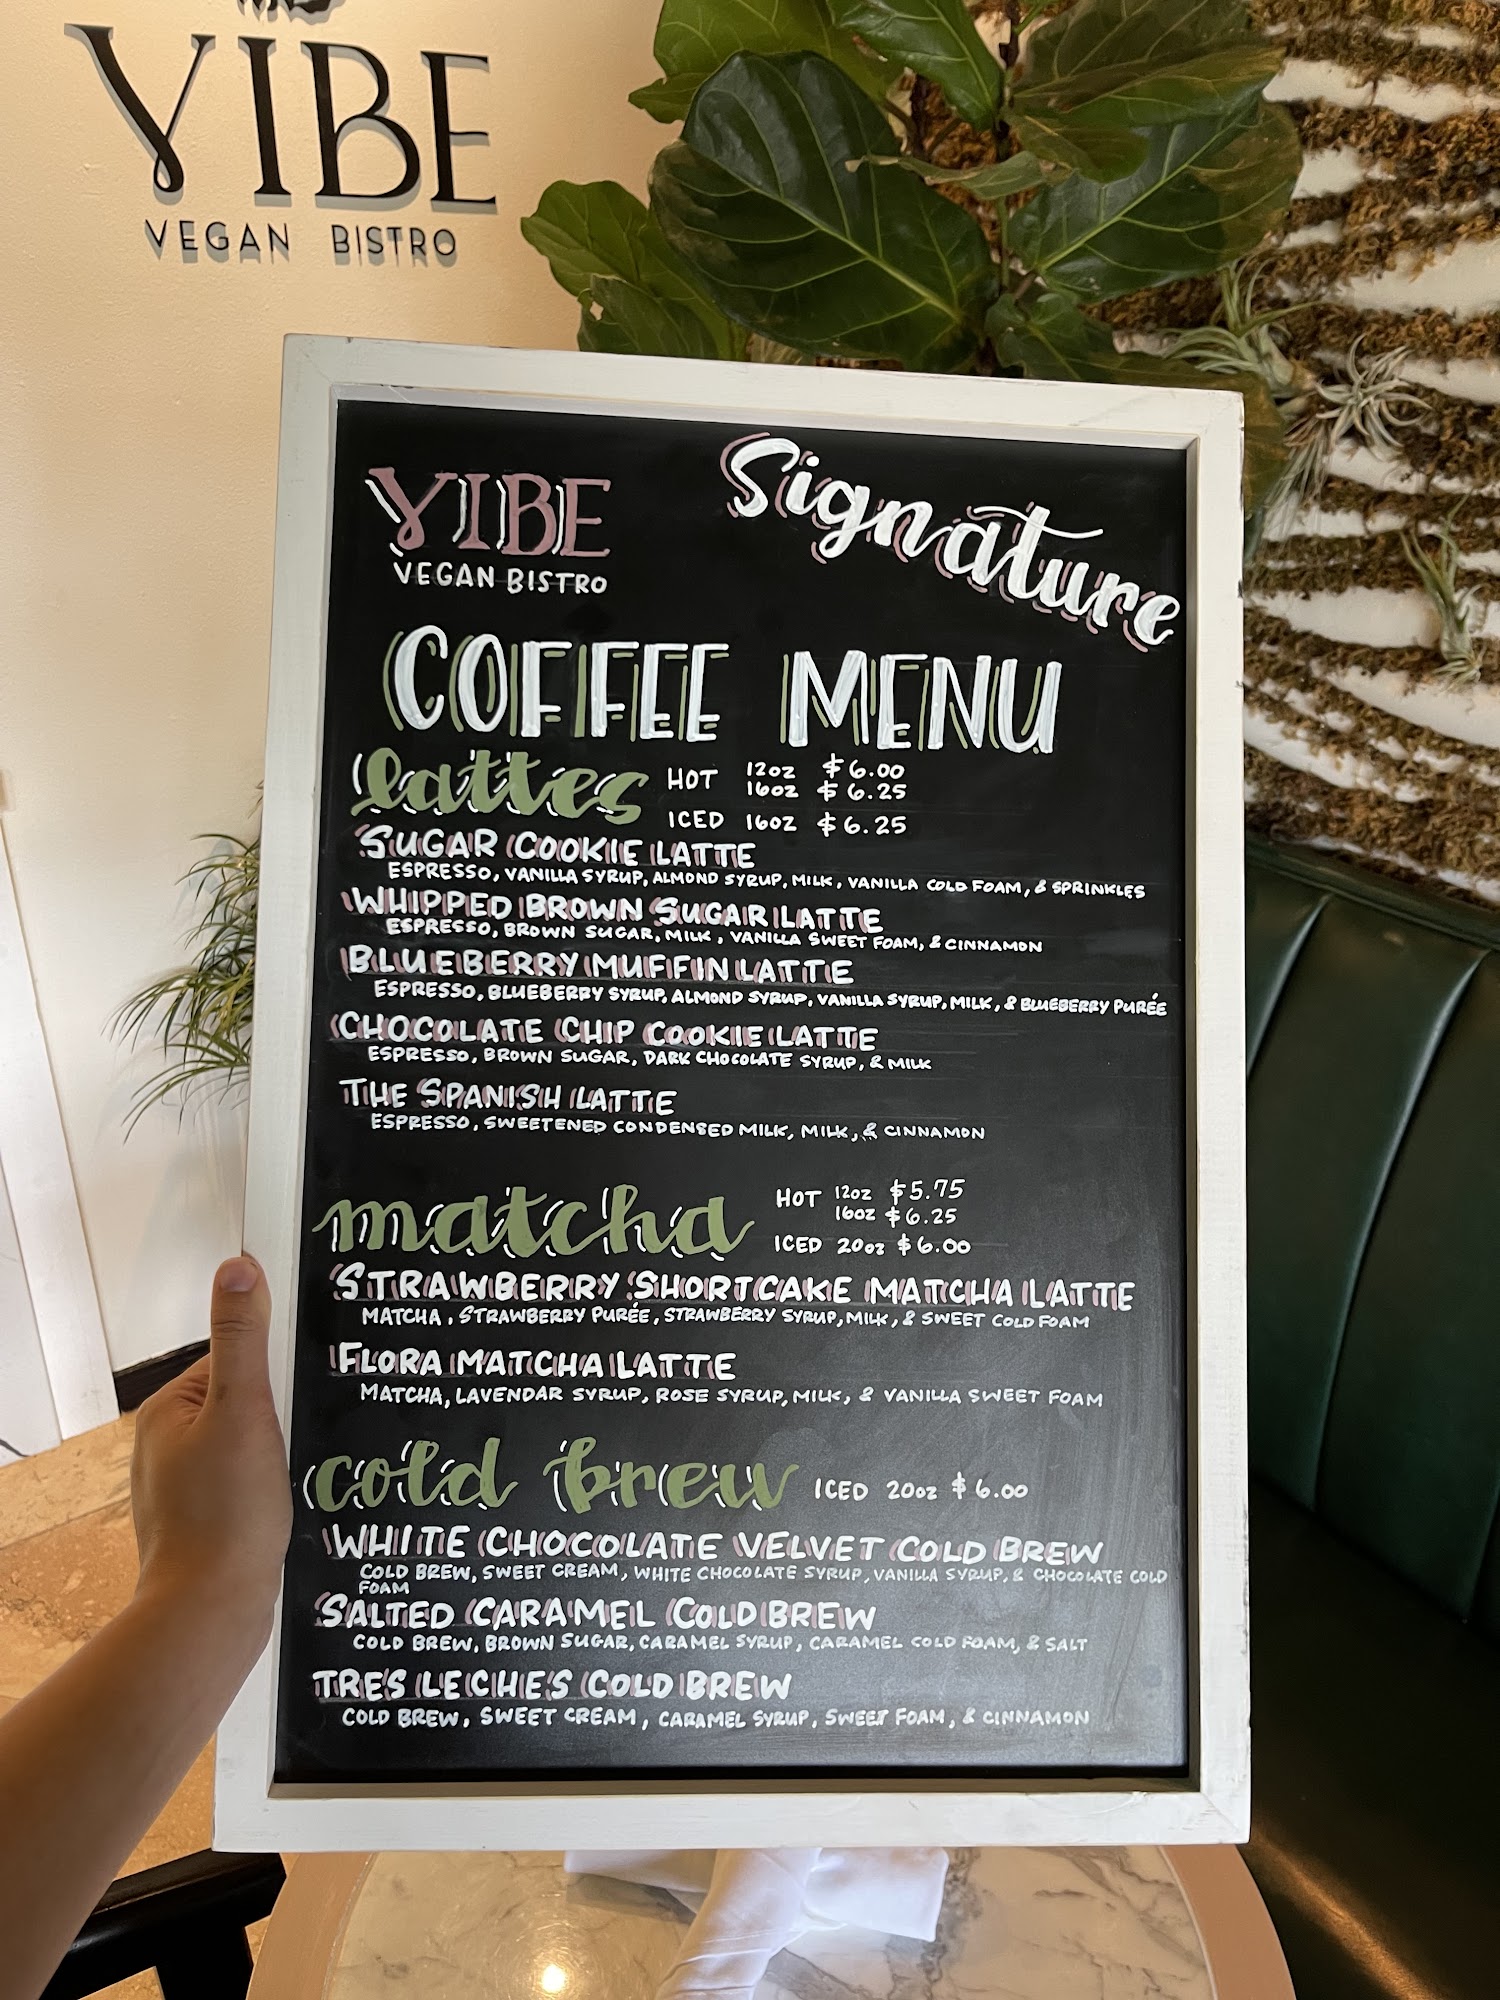 VIBE
VEGAN BISTRO
VIBE
VEGAN BISTRO
Signature
COFFEE MENU
lattes
HOT 12oz $6.00
16oz $6.25
ICED 16oz $6.25
SUGAR COOKIE LATTE
ESPRESSO, VANILLA SYRUP, ALMOND SYRUP, MILK, VANILLA COLD FOAM, & SPRINKLES
WHIPPED BROWN SUGAR LATTE
ESPRESSO, BROWN SUGAR, MILK, VANILLA SWEET FOAM, & CINNAMON
BLUEBERRY MUFFIN LATTE
ESPRESSO, BLUEBERRY SYRUP, ALMOND SYRUP, VANILLA SYRUP, MILK, & BLUEBERRY PURÉE
CHOCOLATE CHIP COOKIE LATTE
ESPRESSO, BROWN SUGAR, DARK CHOCOLATE SYRUP, & MILK
THE SPANISH LATTE
ESPRESSO, SWEETENED CONDENSED MILK, MILK, & CINNAMON
matcha
HOT 12oz $5.75
16oz $6.25
ICED 20oz $6.00
STRAWBERRY SHORTCAKE MATCHA LATTE
MATCHA, STRAWBERRY PURÉE, STRAWBERRY SYRUP, MILK, & SWEET COLD FOAM
FLORA MATCHA LATTE
MATCHA, LAVENDAR SYRUP, ROSE SYRUP, MILK, & VANILLA SWEET FOAM
cold brew
ICED 20oz $6.00
WHITE CHOCOLATE VELVET COLD BREW
COLD BREW, SWEET CREAM, WHITE CHOCOLATE SYRUP, VANILLA SYRUP, & CHOCOLATE COLD
FOAM
SALTED CARAMEL COLD BREW
COLD BREW, BROWN SUGAR, CARAMEL SYRUP, CARAMEL COLD FOAM, & SALT
TRES LECHES COLD BREW
COLD BREW, SWEET CREAM, CARAMEL SYRUP, SWEET FOAM, & CINNAMON